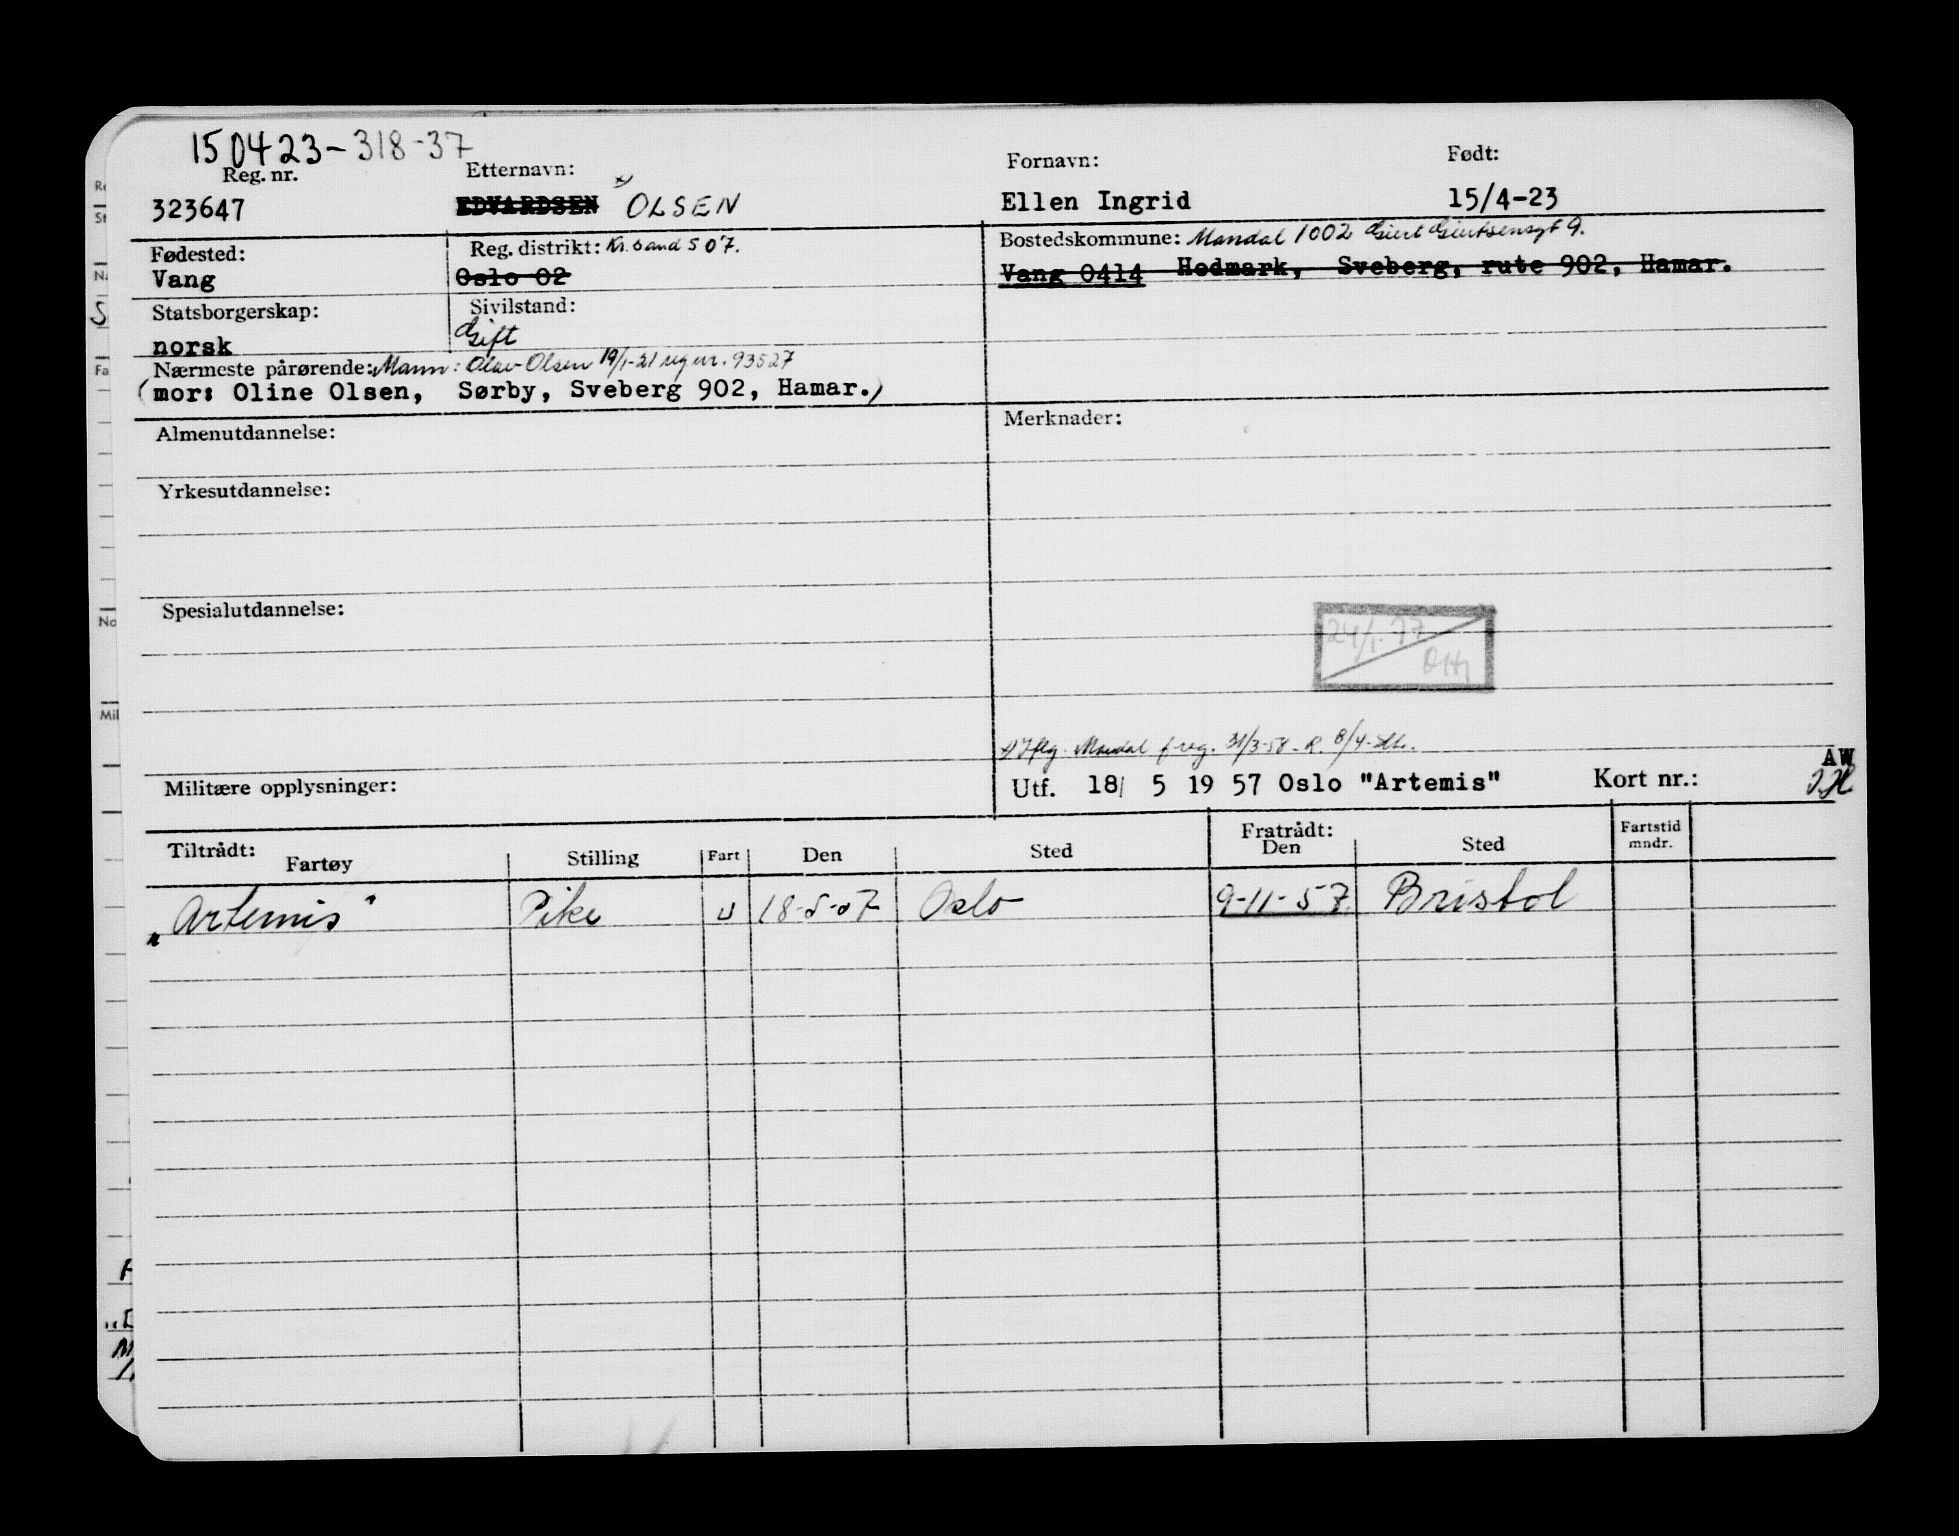 150423-318-37
Reg. nr. Etternavn: Fornavn: Født:
323647 EDVARDSEN x OLSEN Ellen Ingrid 15/4-23
Fødested: Reg. distrikt: Kr.sand S 07. Bostedskommune: Mandal 1002 Giert Giertsensgt 9.
Vang Oslo 02 Vang 0414 Hedmark, Sveberg, rute 902, Hamar.
Statsborgerskap: Sivilstand:
norsk Gift
Nærmeste pårørende: Mann: Olav Olsen 19/1-21 reg nr. 93527
(mor: Oline Olsen, Sørby, Sveberg 902, Hamar.)
Almenutdannelse: Merknader:
Yrkesutdannelse:
Spesialutdannelse:
24/1-77
Iflg. Mandal freg. 31/3-58 - R. 8/4-
AW
Militære opplysninger: Utf. 18/ 5 19 57 Oslo "Artemis" Kort nr.:
Tiltrådt: Fratrådt: Fartstid
Fartøy Stilling Fart Den Sted Den Sted mndr.
"Artemis" Pike U 18-5-57 Oslo 9-11-57. Bristol